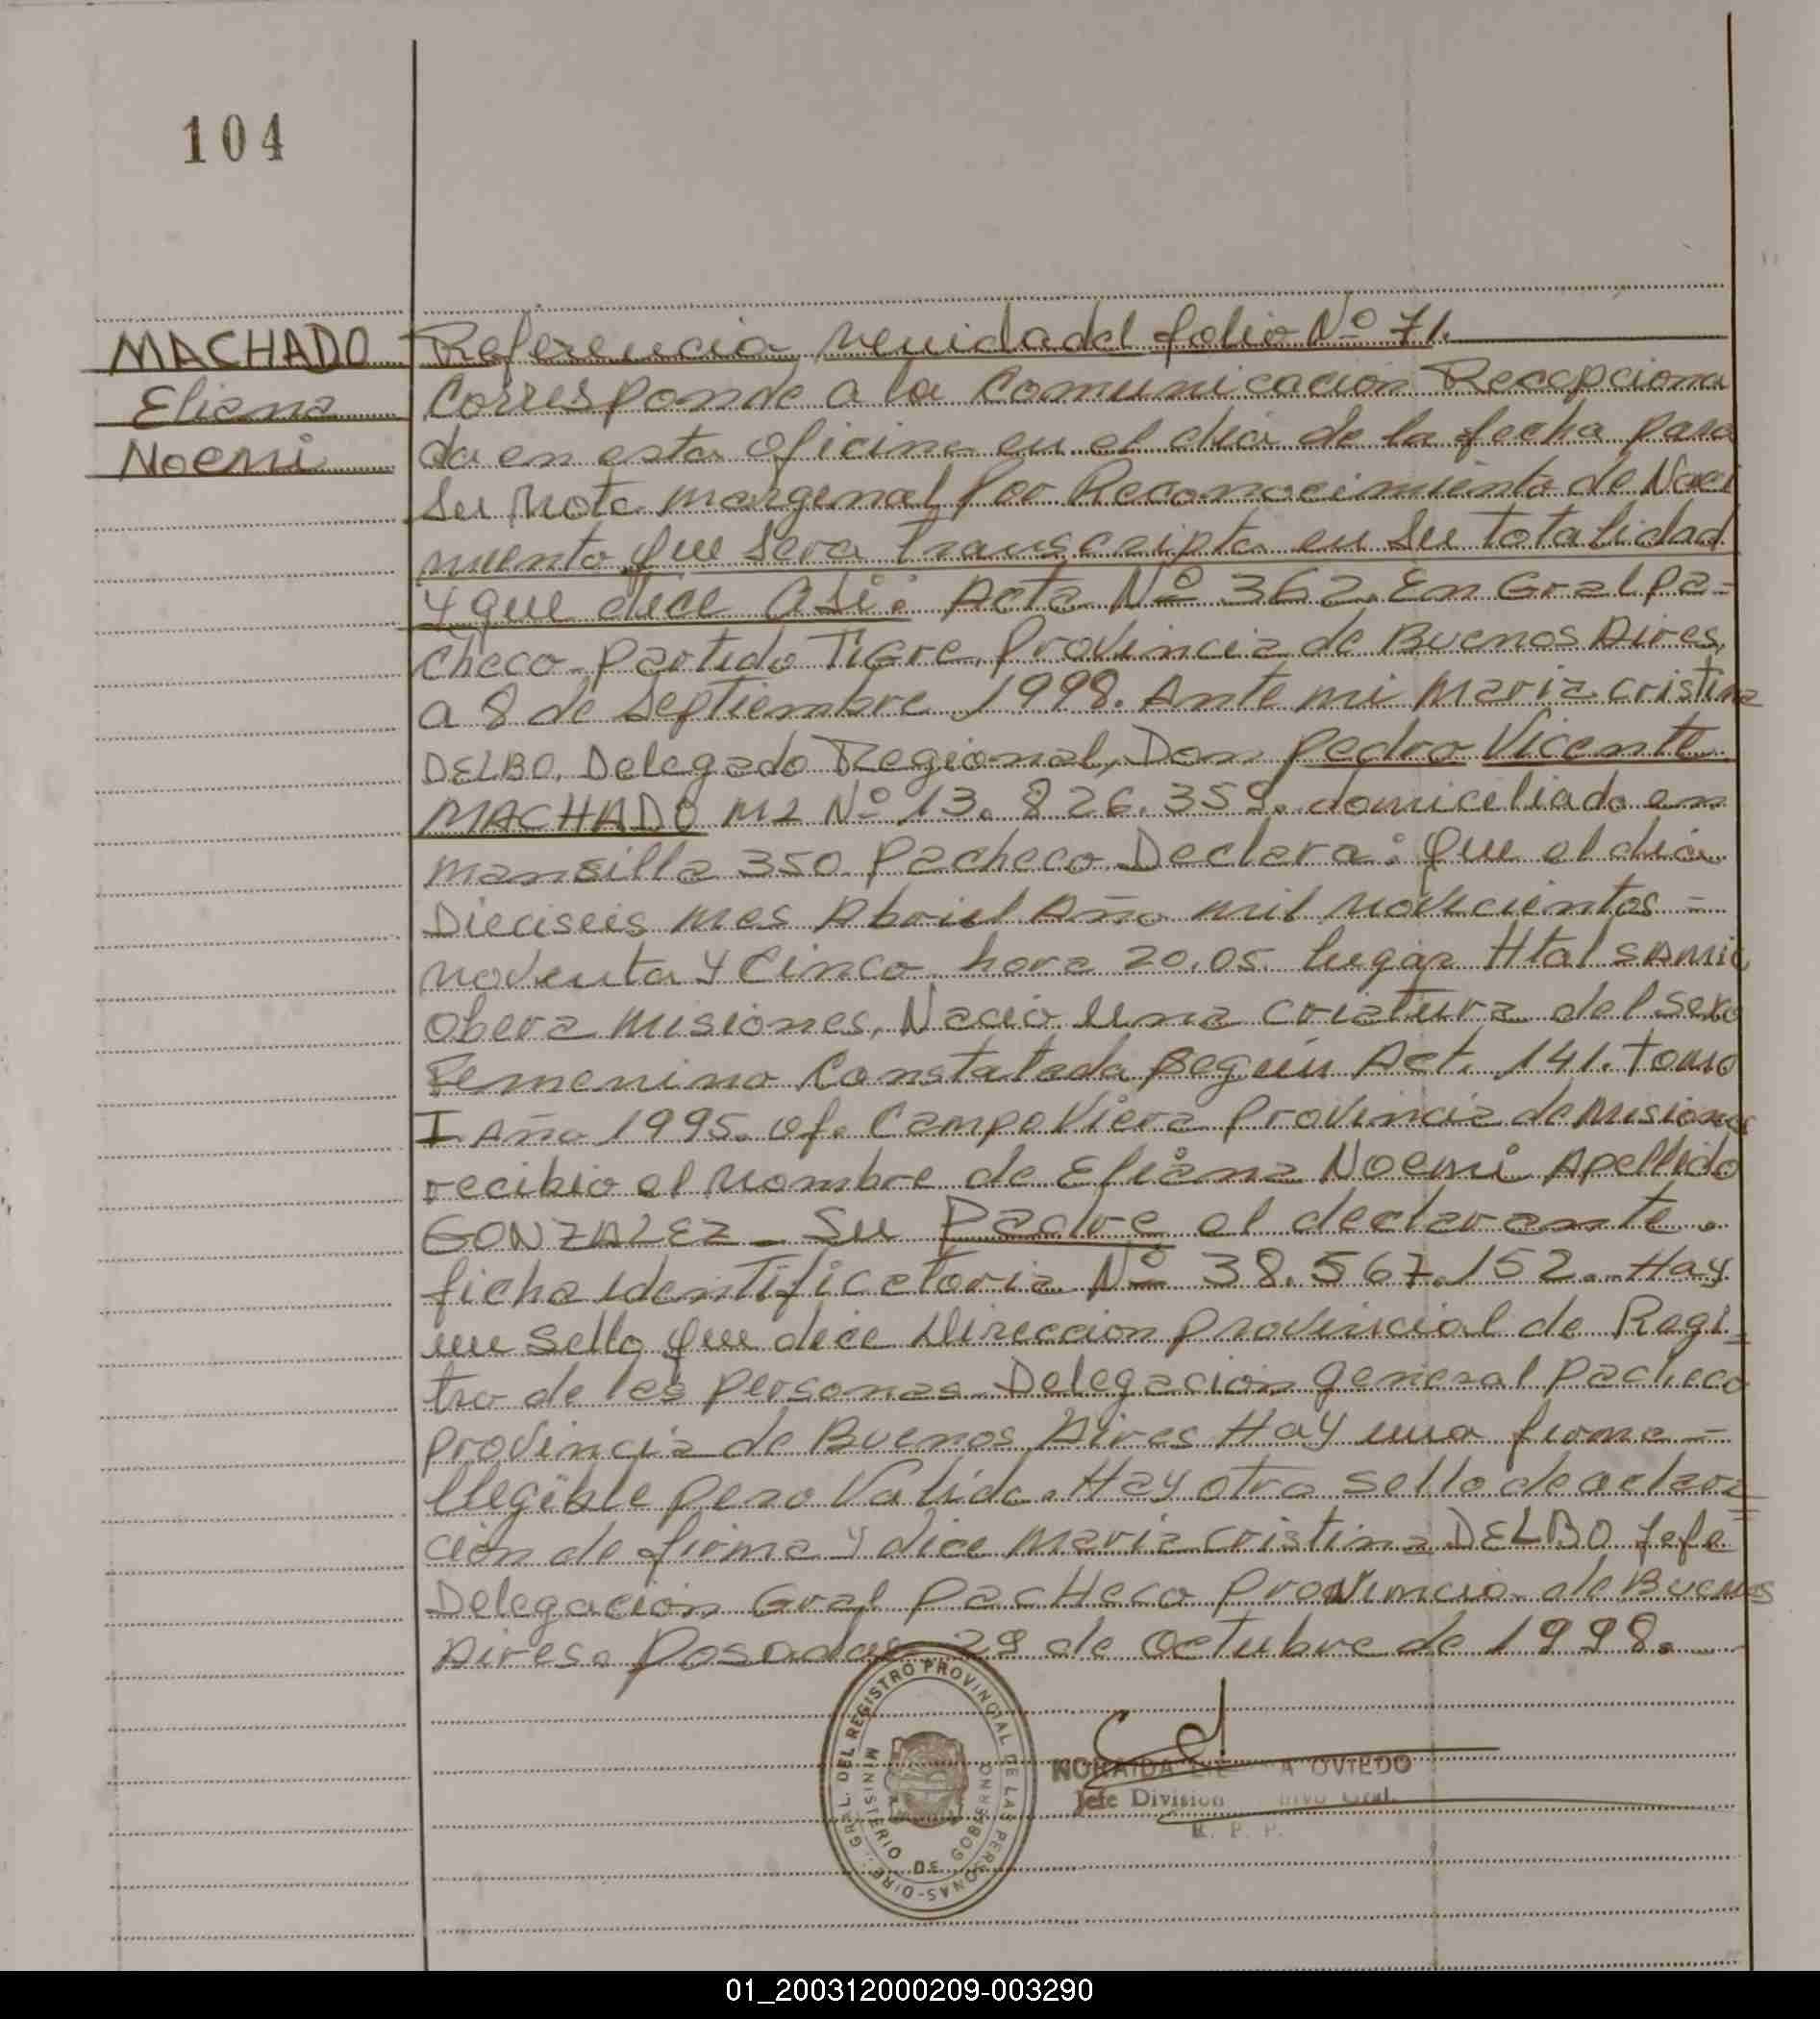 104
MACHADO
Eliana
Noemi
Referencia venida del folio Nº 71.
Corresponde a la Comunicacion Recepciona
da en esta oficina en el dia de la fecha para
su Nota marginal por Reconocimiento de Naci
miento que sera transcripta en su totalidad
y que dice asi: Acta Nº 362. En Gral Pa=
checo-partido Tigre, Provincia de Buenos Aires,
a 8 de septiembre 1998. Ante mi Maria cristina
DELBO, Delegado Regional, Don pedro Vicente
MACHADO MI Nº 13.826.359. domiciliado en
mansilla 350 Pacheco Declara: Que el dia
Dieciseis mes Abril Año mil novecientos =
noventa y Cinco hora 20.05. lugar Htal SAMIC
Obera Misiones, Nacio una criatura del sexo
Femenino Constatada segun Act. 141. Tomo
I Año 1995. of. Campo Viera Provincia de Misiones
recibio el nombre de Eliana Noemi Apellido
GONZALEZ - Su Padre el declarante.
ficha identificatoria Nº 38.567.152. Hay
un sello que dice Direccion provincial de Regi-
tro de las personas Delegacion general pacheco
provincia de Buenos Aires Hay una firma -
Ilegible pero Valida. Hay otro sello de aclara=
ción de firma y dice maria cristina DELBO Jefe
Delegación Gral Pacheco Provincia de Buenos
Aires. Posadas 29 de octubre de 1998.
DIREC. GRAL. DEL REGISTRO PROVINCIAL DE LAS PERSONAS
MINISTERIO DE GOBERNO
OVIEDO
Jefe Division Gral.
R. P. P.
01_200312000209-003290